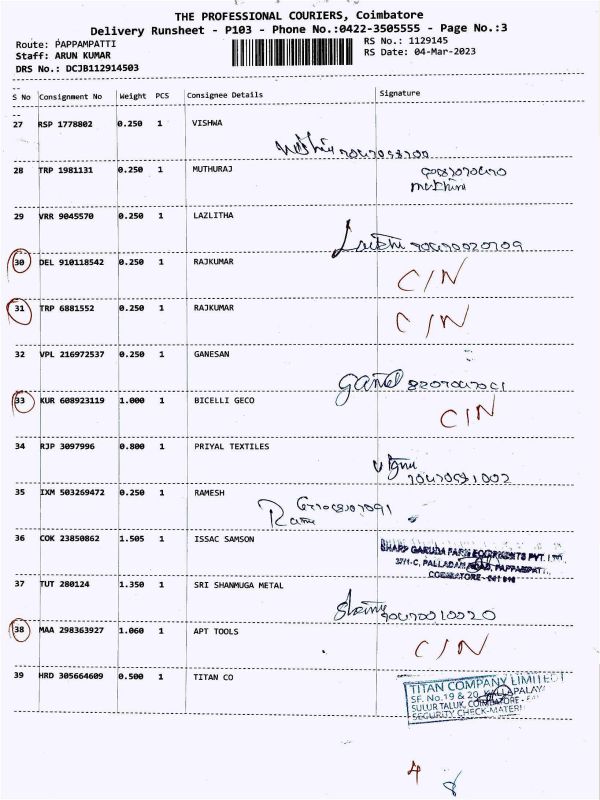 THE PROFESSIONAL COURIERS, Coimbatore
Delivery Runsheet - P103 - Phone No.:0422-3505555 - Page No.:3
Route: PAPPAMPATTI
RS No.: 1129145
Staff: ARUN KUMAR
RS Date: 04-Mar-2023
DRS No.: DCJB112914503
S No Consignment No Weight PCS Consignee Details Signature
27 RSP 1778802 0.250 1 VISHWA
28 TRP 1981131 0.250 1 MUTHURAJ
29 VRR 9045570 0.250 1 LAZLITHA
30 DEL 910118542 0.250 1 RAJKUMAR C/N
31 TRP 6881552 0.250 1 RAJKUMAR C/N
32 VPL 216972537 0.250 1 GANESAN
33 KUR 608923119 1.000 1 BICELLI GECO C/N
34 RJP 3097996 0.800 1 PRIYAL TEXTILES
35 IXM 503269472 0.250 1 RAMESH
36 COK 23850862 1.505 1 ISSAC SAMSON
SHARP GARUDA FARM PVT. LTD
37/1-C, PALLADAM ROAD, PAPPAMPATTI
COIMBATORE
37 TUT 280124 1.350 1 SRI SHANMUGA METAL
38 MAA 298363927 1.060 1 APT TOOLS C/N
39 HRD 305664609 0.500 1 TITAN CO
TITAN COMPANY LIMITED
SF. No.19 & 20,
SULUR TALUK, COIMBATORE -
SECURITY CHECK-MATERI
4 8